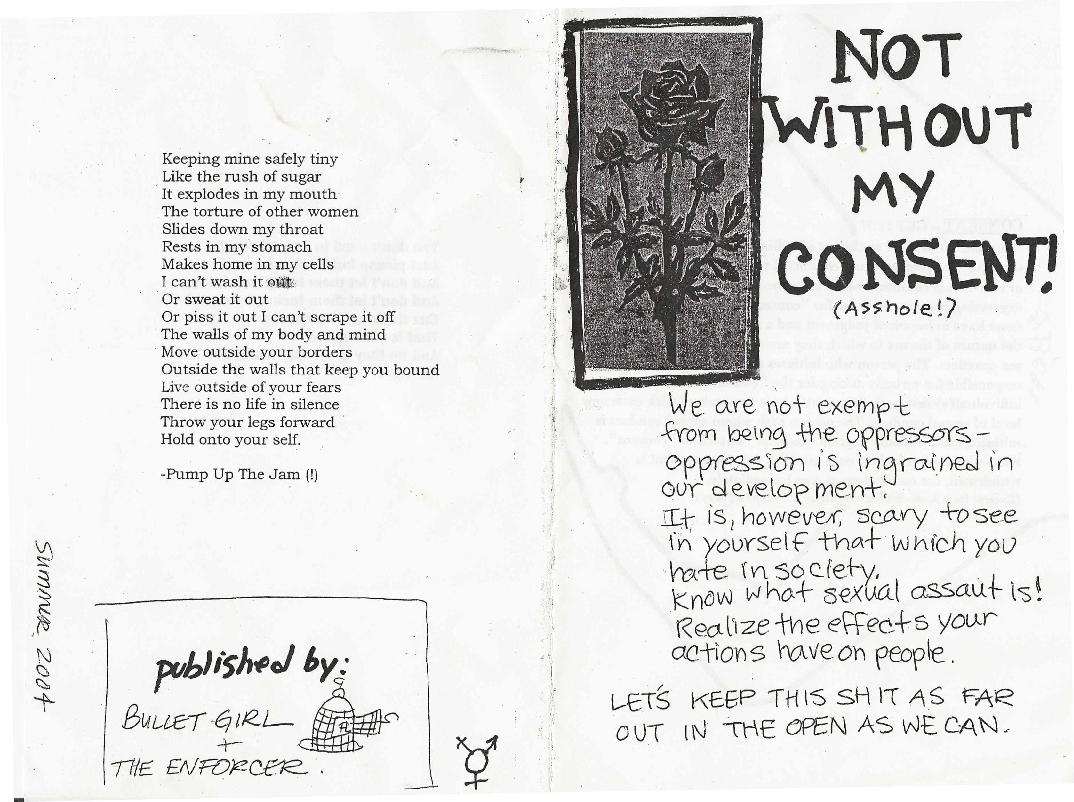 Keeping mine safely tiny
Like the rush of sugar
It explodes in my mouth
The torture of other women
Slides down my throat
Rests in my stomach
Makes home in my cells
I can't wash it out
Or sweat it out
Or piss it out I can't scrape it off
The walls of my body and mind
Move outside your borders
Outside the walls that keep you bound
Live outside of your fears
There is no life in silence
Throw your legs forward
Hold onto your self.
-Pump Up The Jam (!)
Summer 2004
published by:
BULLET GIRL
+
THE ENFORCER.
NOT
WITHOUT
MY
CONSENT!
(Asshole!?)
We are not exempt
from being the oppressors-
oppression is ingrained in
our development.
It is, however, scary to see
in yourself that which you
hate in society.
Know what sexual assaut is!
Realize the effects your
actions have on people.
LET'S KEEP THIS SHIT AS FAR
OUT IN THE OPEN AS WE CAN.